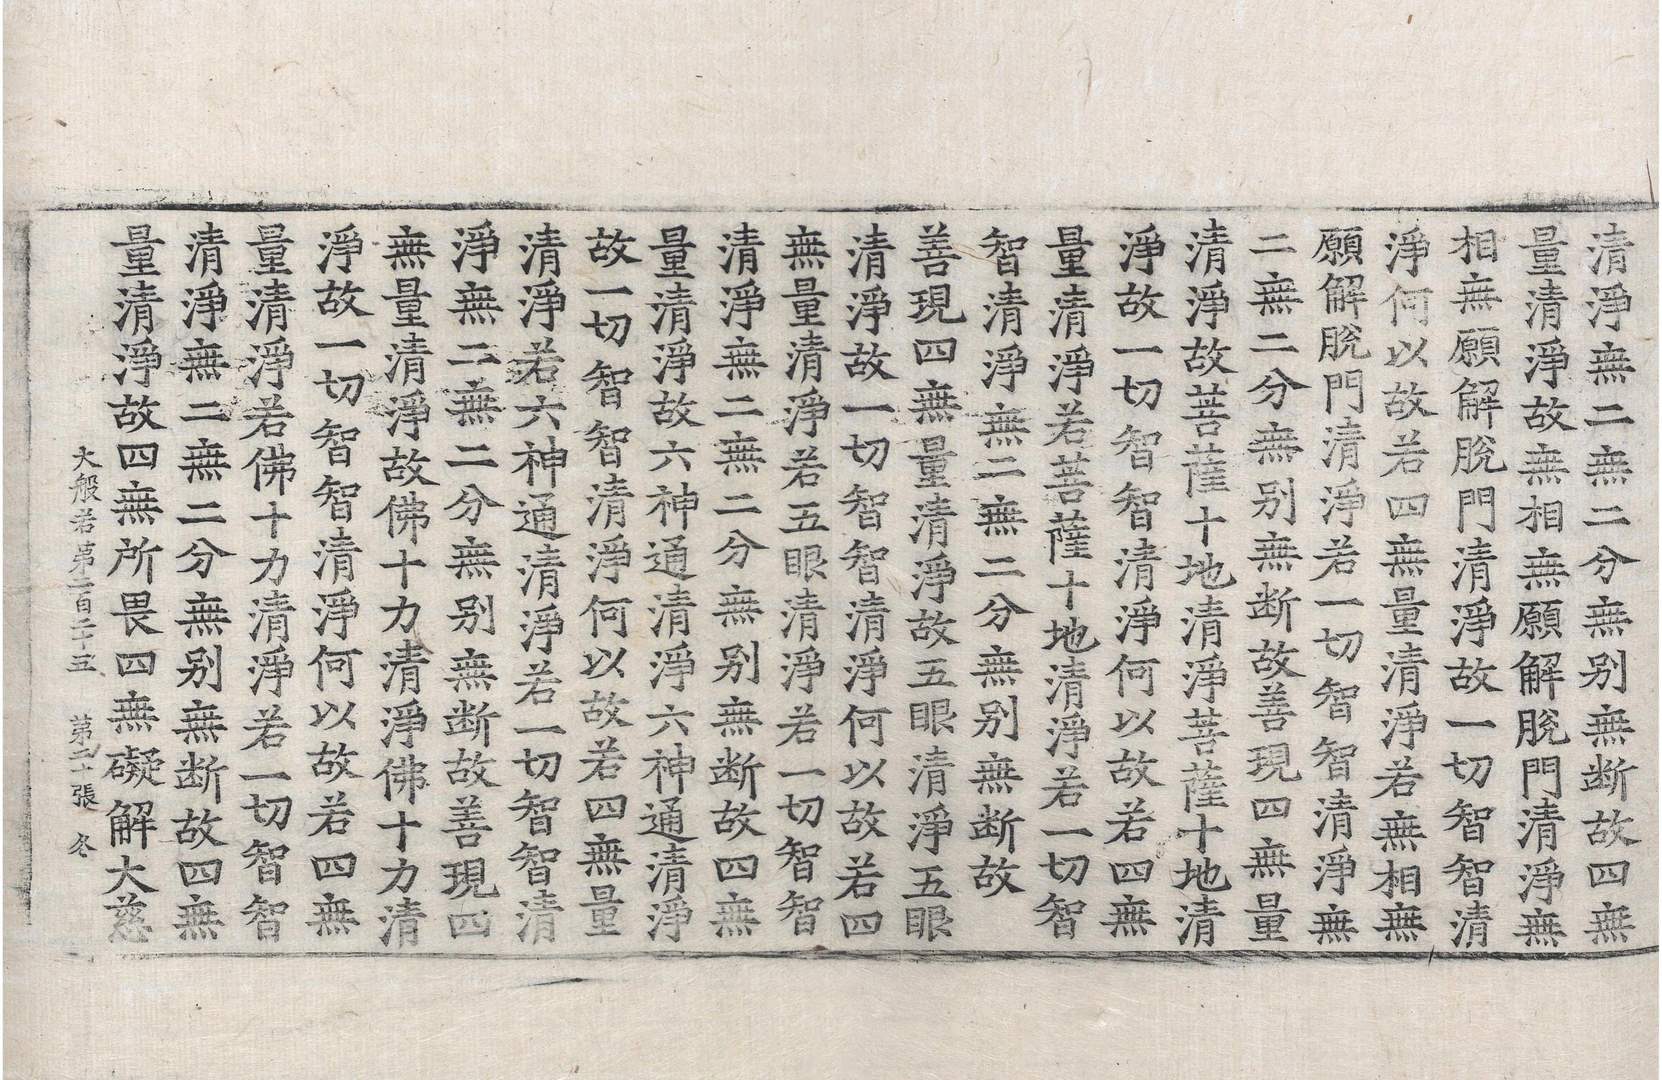 清淨無二無二分無別無断故四無
量清淨故無相無願解脫門清淨無
相無願解脫門清淨故一切智智清
淨何以故若四無量清淨若無相無
願解脫門清淨若一切智智清淨無
二無二分無別無断故善現四無量
清淨故菩薩十地清淨菩薩十地清
淨故一切智智清淨何以故若四無
量清淨若菩薩十地清淨若一切智
智清淨無二無二分無別無断故
善現四無量清淨故五眼清淨五眼
清淨故一切智智清淨何以故若四
無量清淨若五眼清淨若一切智智
清淨無二無二分無別無断故四無
量清淨故六神通清淨六神通清淨
故一切智智清淨何以故若四無量
清淨若六神通清淨若一切智智清
淨無二無二分無別無断故善現四
無量清淨故佛十力清淨佛十力清
淨故一切智智清淨何以故若四無
量清淨若佛十力清淨若一切智智
清淨無二無二分無別無断故四無
量清淨故四無所畏四無礙解大慈
大般若第二百二十五 第二十張 冬